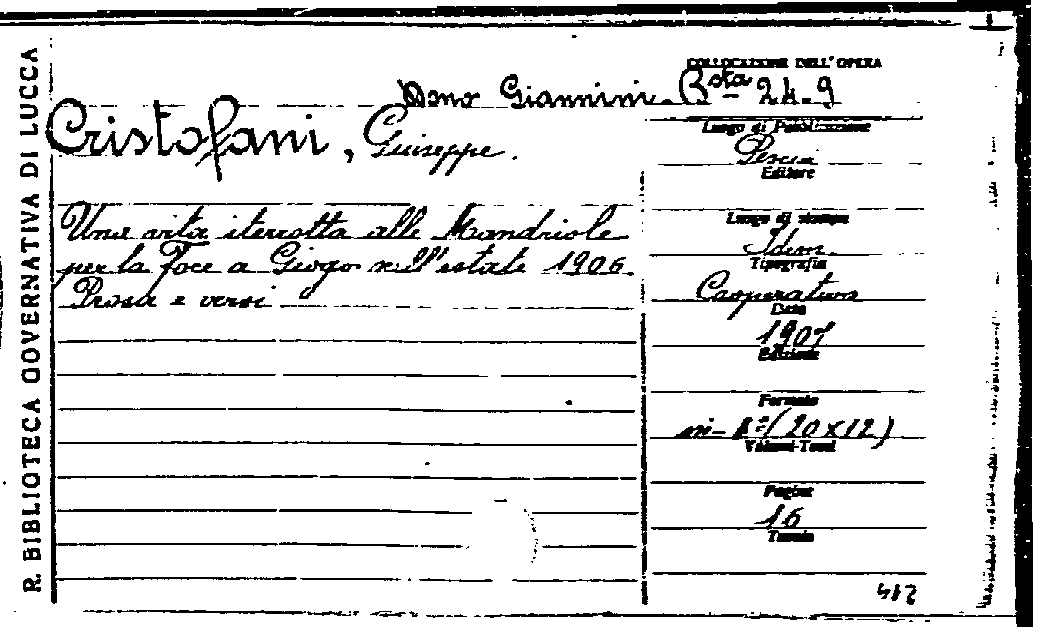 R. BIBLIOTECA GOVERNATIVA DI LUCCA
COLLOCAZIONE DELL'OPERA
Dono Giannini. Bsta 24.9
Cristofani, Giuseppe.
Luogo di Pubblicazione
Pescia
Editore
Una vita iterrotta alle Mandriole
per la Foce a Giogo nell'estate 1906
Prosa e versi
Luogo di stampa
Idem
Tipografia
Cooperativa
Data
1907
Edizione
Formato
in-8º (20x12)
Volumi-Tomi
Pagine
16
Tavole
412